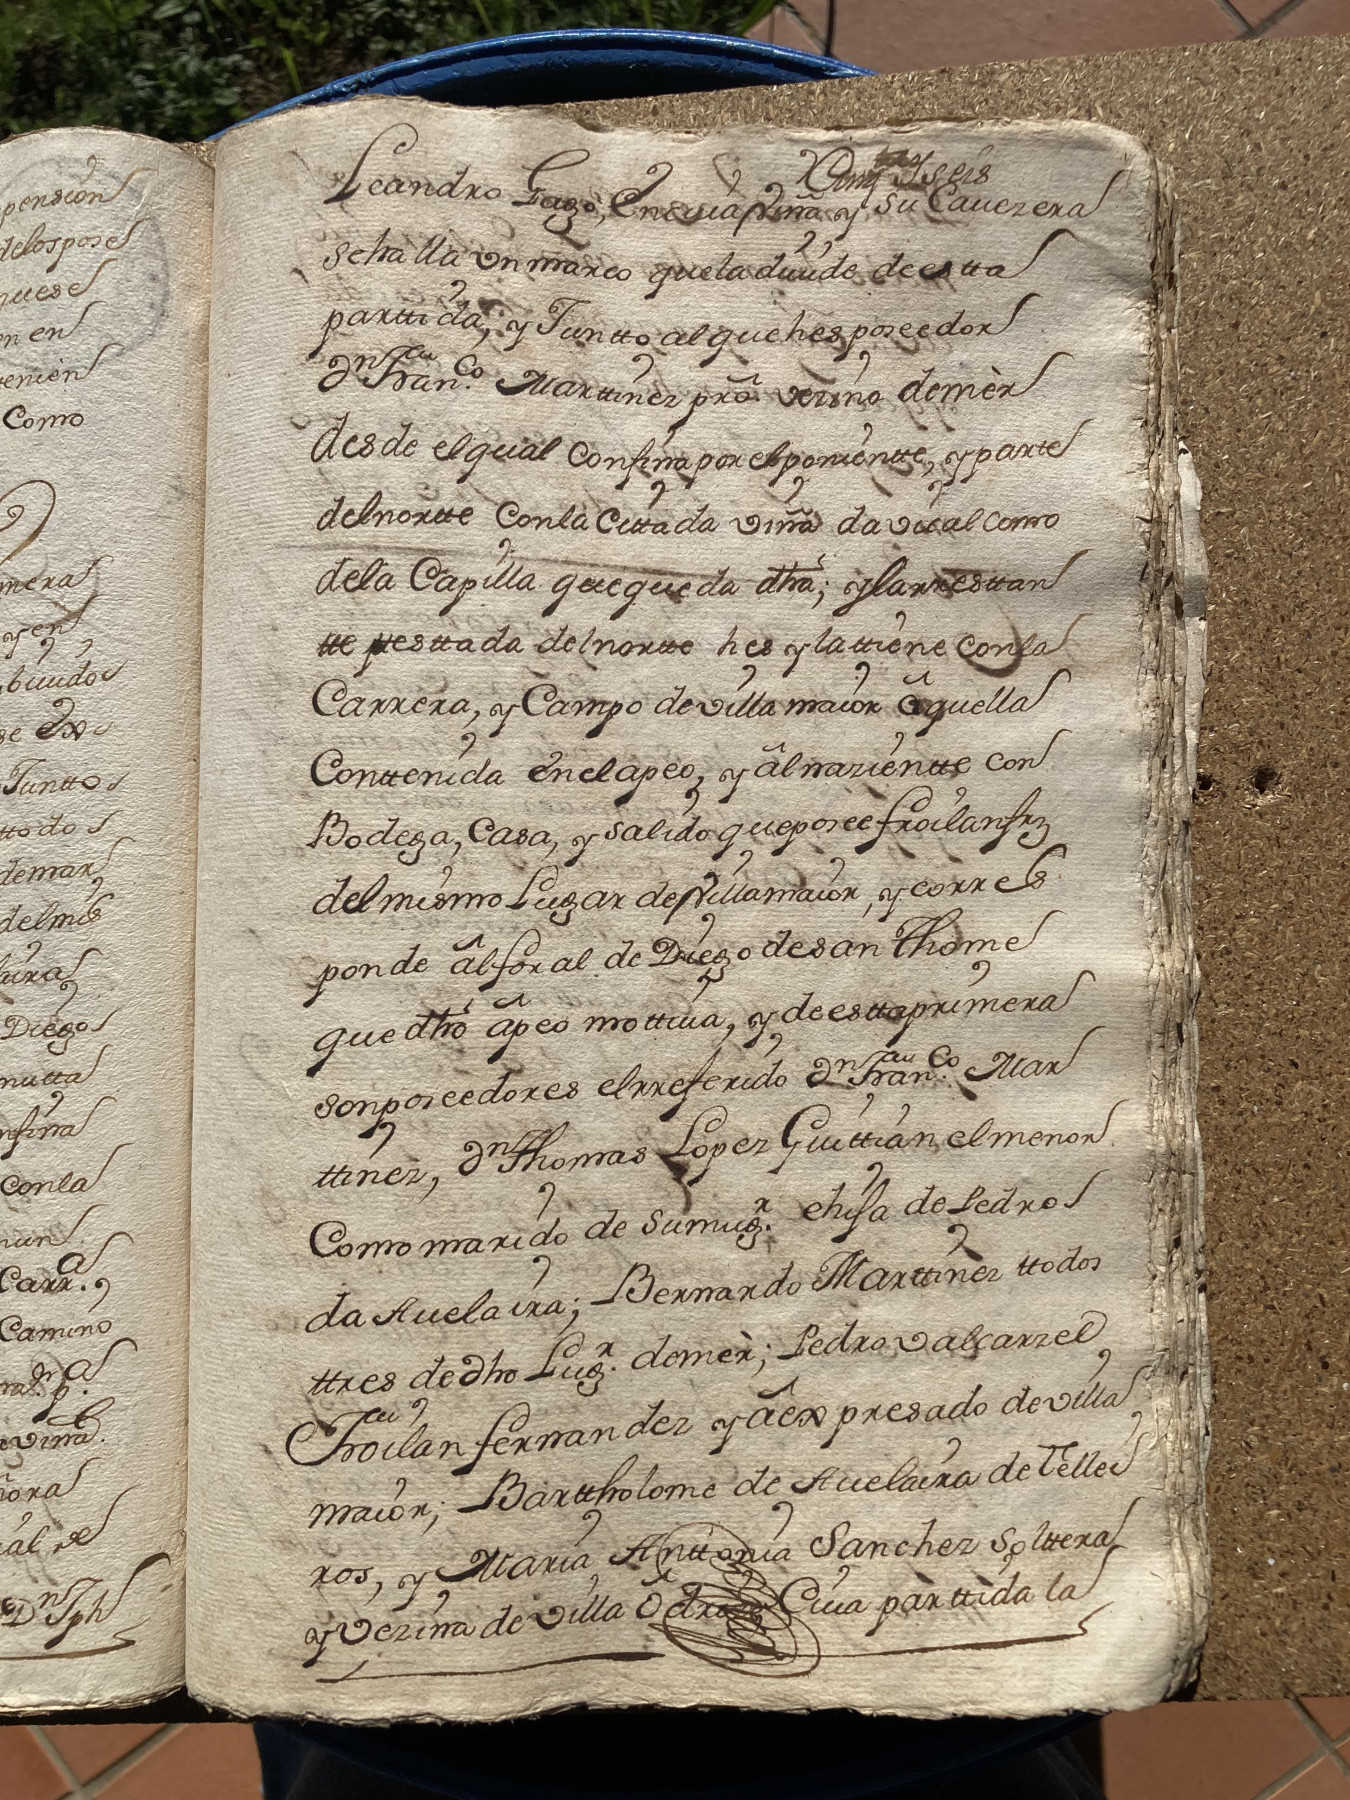 pension
delospose
quese
en en
venien
Como
mera
y en
buido
se ex
Juntto
ttodo
demar
delmis
Diego
mutta
nfina
conla
Carr.a
Camino
viña
ñora
Dn Jph
Cinqta y seis
Leandro Gago, en cuia viña y su Cavezera
se halla vn marco que la divide de estta
parttida, y Juntto al que hes poseedor
Dn Fran.co Marttinez pro vezino de mèr
desde el qual confina por el ponientte, y parte
del nortte con la Cittada viña da vical como
de la Capilla que queda dha; y la rresttan
tte testtada del nortte hes y la ttiene con la
Carrera, y Campo de villamaior â quella
Conttenida en el apeo, y âl nazientte con
Bodega, Casa, y salido que posee froilan frz
del mismo Lugar de Villamaior, y corres
ponde âl foral de Diego de san Thome
que dho âpeo mottiva, y de estta primera
son poseedores el rreferido Dn Fran.co Mar
ttinez, Dn Thomas Lopez Guittian el menor
Como marido de su mug.r e hija de Pedro
da Avelaira; Bernardo Marttinez ttodos
ttres de dho Lug.r de mèr; Pedro valcarzel
Froilan fernandez y âexpresado de villa
maior; Barttholome de Avelaira de Tellei
ros, y Maria Anttonia Sanchez solttera
y vezina de villa Cuia parttida la